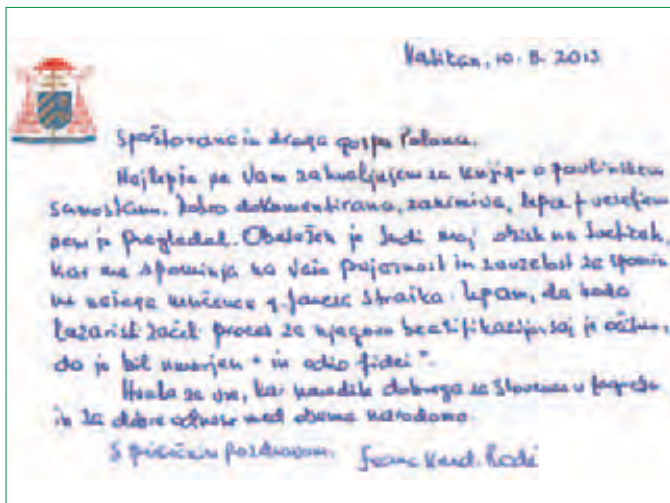 Vatikan, 10. 8. 2013
Spoštovana in draga gospa Polona.
Najlepše se Vam zahvaljujem za knjigo o pavlinskem
samostanu. Dobro dokumentirana, zanimiva, lepa, z veseljem
sem jo pregledal. Obeležen je tudi moj obisk na
kar me spominja na Vašo prijaznost in zavzetost za spomin
na našega mučenca g. Janeza Straška. Upam, da bodo
lazaristi začeli proces za njegovo beatifikacijo, saj je očitno,
da je bil umorjen "in odio fidei".
Hvala za vse, kar naredite dobrega za Slovence v Zagrebu
in za dobre odnose med obema narodoma.
S prisrčnim pozdravom. Franc kard. Rode